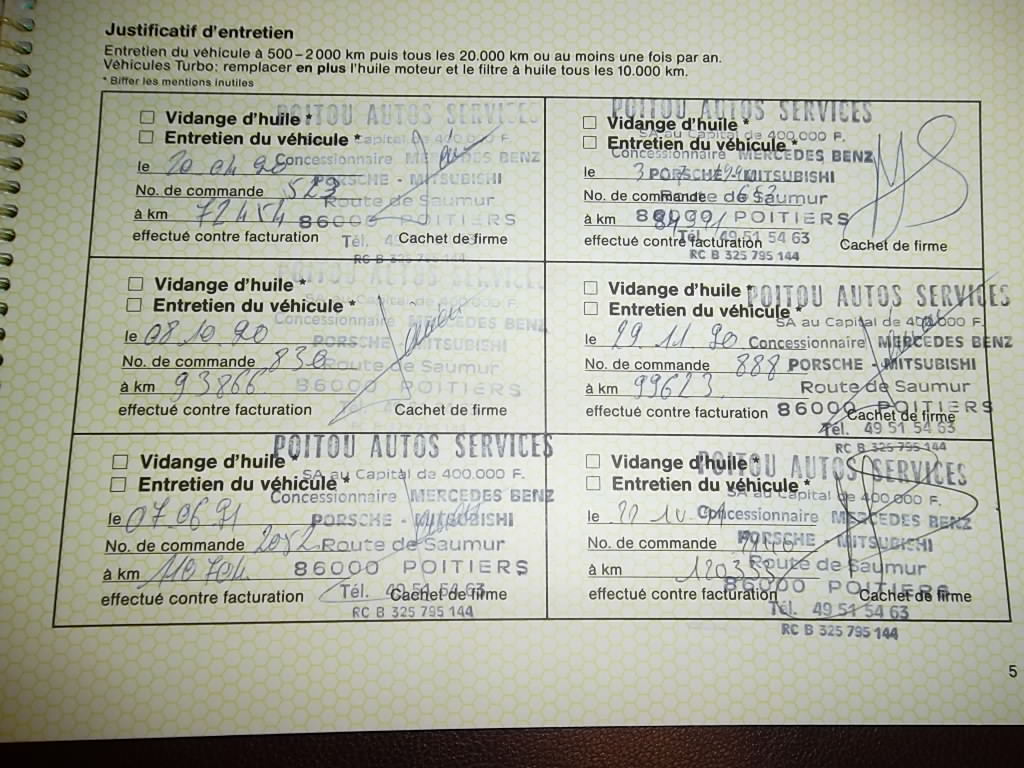 Justificatif d'entretien
Entretien du véhicule à 500–2 000 km puis tous les 20.000 km ou au moins une fois par an.
Véhicules Turbo: remplacer en plus l'huile moteur et le filtre à huile tous les 10.000 km.
* Biffer les mentions inutiles
Vidange d'huile *
Entretien du véhicule *
le 20 04 90
No. de commande 523
à km 72454
effectué contre facturation
Cachet de firme
POITOU AUTOS SERVICES
Capital de 400.000 F.
Concessionnaire MERCEDES BENZ
PORSCHE - MITSUBISHI
Route de Saumur
86000 POITIERS
Tél.
RC B 325 795 144
Vidange d'huile *
Entretien du véhicule *
le 3
No. de commande 653
à km
effectué contre facturation
Cachet de firme
POITOU AUTOS SERVICES
SA au Capital de 400.000 F.
Concessionnaire MERCEDES BENZ
PORSCHE - MITSUBISHI
Route de Saumur
86000 POITIERS
Tél. 49 51 54 63
RC B 325 795 144
Vidange d'huile *
Entretien du véhicule *
le 08 10 90
No. de commande 830
à km 93866
effectué contre facturation
Cachet de firme
POITOU AUTOS SERVICES
SA au Capital de 400.000 F.
Concessionnaire MERCEDES BENZ
PORSCHE - MITSUBISHI
Route de Saumur
86000 POITIERS
Vidange d'huile *
Entretien du véhicule *
le 29 11 90
No. de commande 888
à km 99623
effectué contre facturation
Cachet de firme
POITOU AUTOS SERVICES
SA au Capital de 400.000 F.
Concessionnaire MERCEDES BENZ
PORSCHE - MITSUBISHI
Route de Saumur
86000 POITIERS
Tél. 49 51 54 63
RC B 325 795 144
Vidange d'huile *
Entretien du véhicule *
le 07 06 91
No. de commande 2052
à km 110704
effectué contre facturation
Cachet de firme
POITOU AUTOS SERVICES
SA au Capital de 400.000 F.
Concessionnaire MERCEDES BENZ
PORSCHE - MITSUBISHI
Route de Saumur
86000 POITIERS
Tél. 49 51 54 63
RC B 325 795 144
Vidange d'huile *
Entretien du véhicule *
le
No. de commande
à km
effectué contre facturation
Cachet de firme
POITOU AUTOS SERVICES
SA au Capital de 400.000 F.
Concessionnaire MERCEDES BENZ
PORSCHE - MITSUBISHI
Route de Saumur
86000 POITIERS
Tél. 49 51 54 63
RC B 325 795 144
5